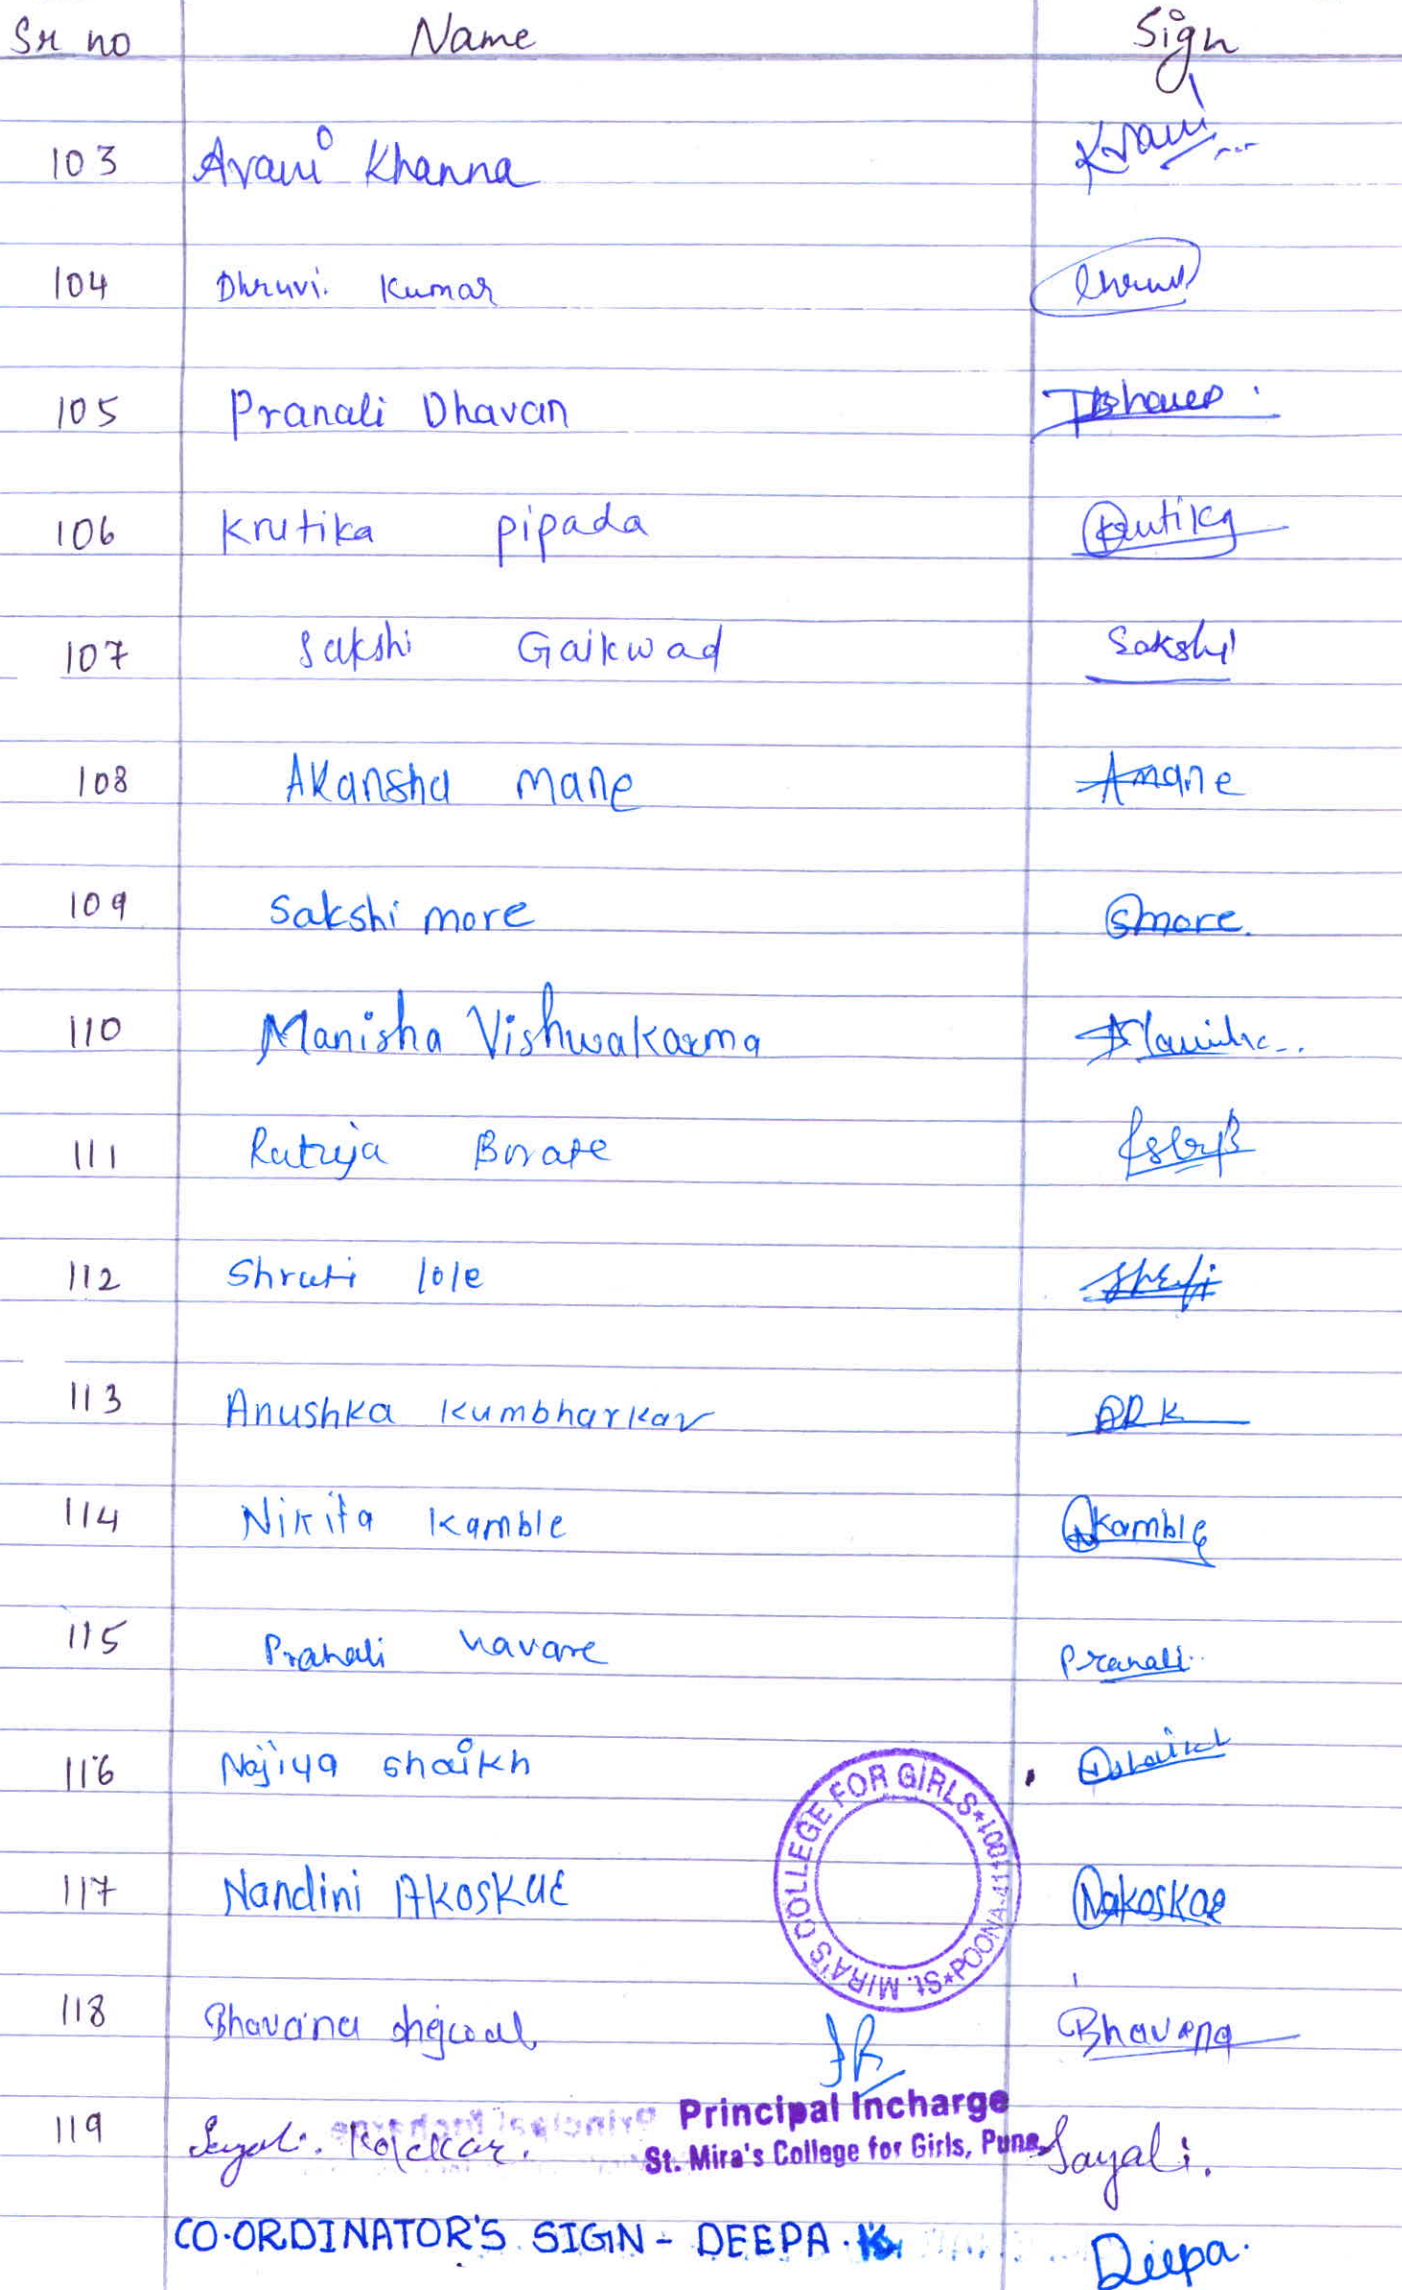 Sr no Name Sign
103 Avani Khanna
104 Dhruvi. Kumar
105 Pranali Dhavan
106 Krutika pipada Krutika
107 Sakshi Gaikwad Sakshi
108 Akansha mane Amane
109 Sakshi more Smore.
110 Manisha Vishwakarma
111 Rutuja Borate
112 Shruti lole
113 Anushka kumbharkar ARK
114 Nikita kamble Nkamble
115 Pranali navare Pranali
116 Najiya shaikh
117 Nandini AKOSKAE NAKOSKAE
118 Bhavana Bhavana
ST. MIRA'S COLLEGE FOR GIRLS*POONA-411001*
119 Sayali. Sayali.
Principal Incharge
St. Mira's College for Girls, Pune
CO.ORDINATOR'S SIGN - DEEPA.K. Deepa.